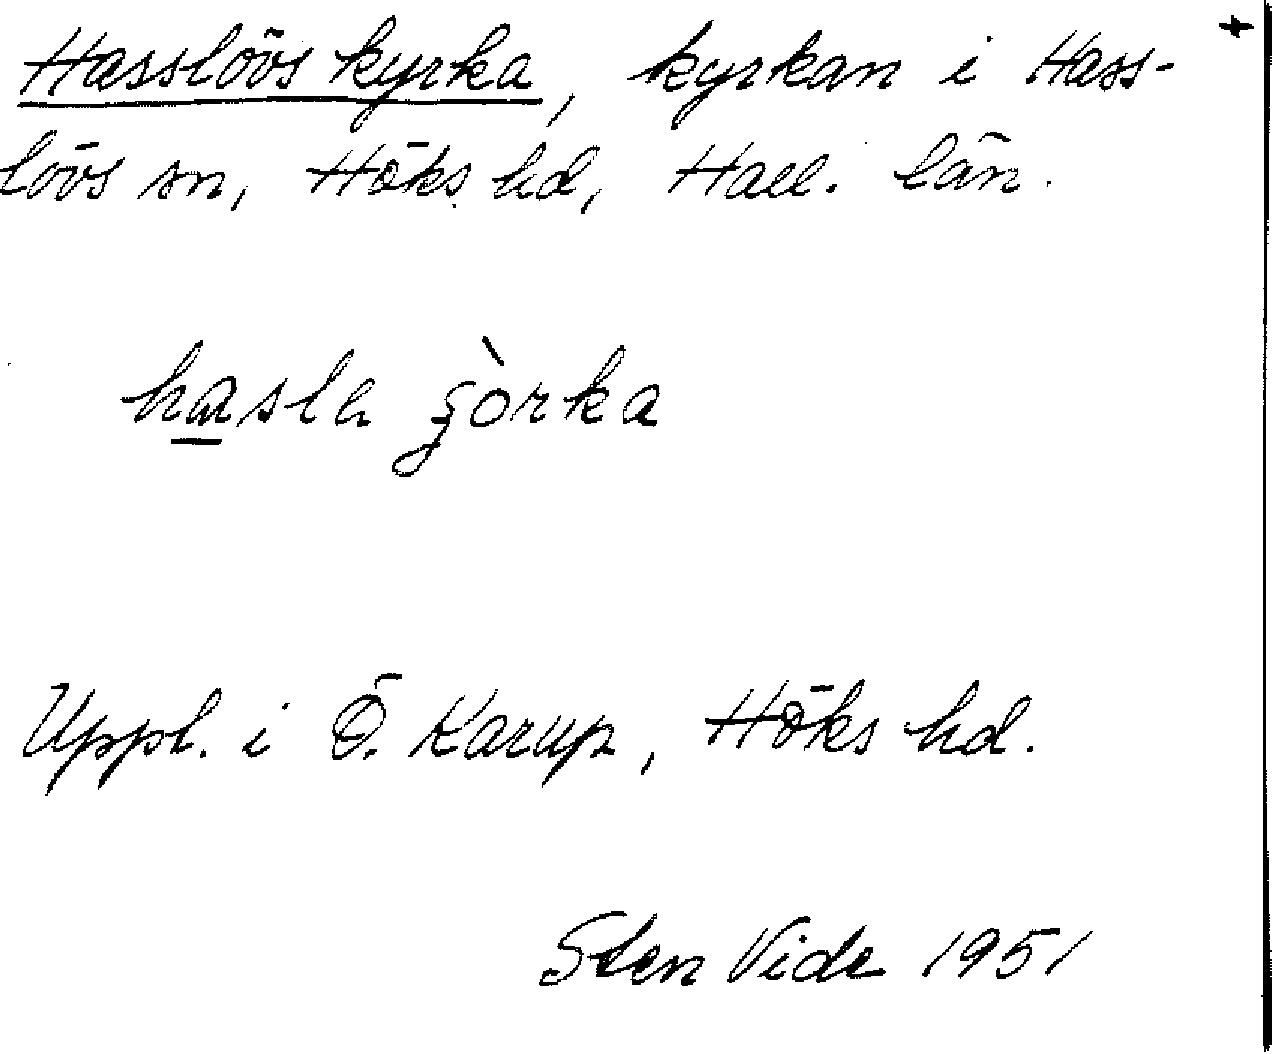 Hasslövs kyrka, kyrkan i Hass- +
lövs sn, Höks hd, Hall. län.
hasla
Uppl. i Ö. Karup, Höks hd.
Sten Vide 1951